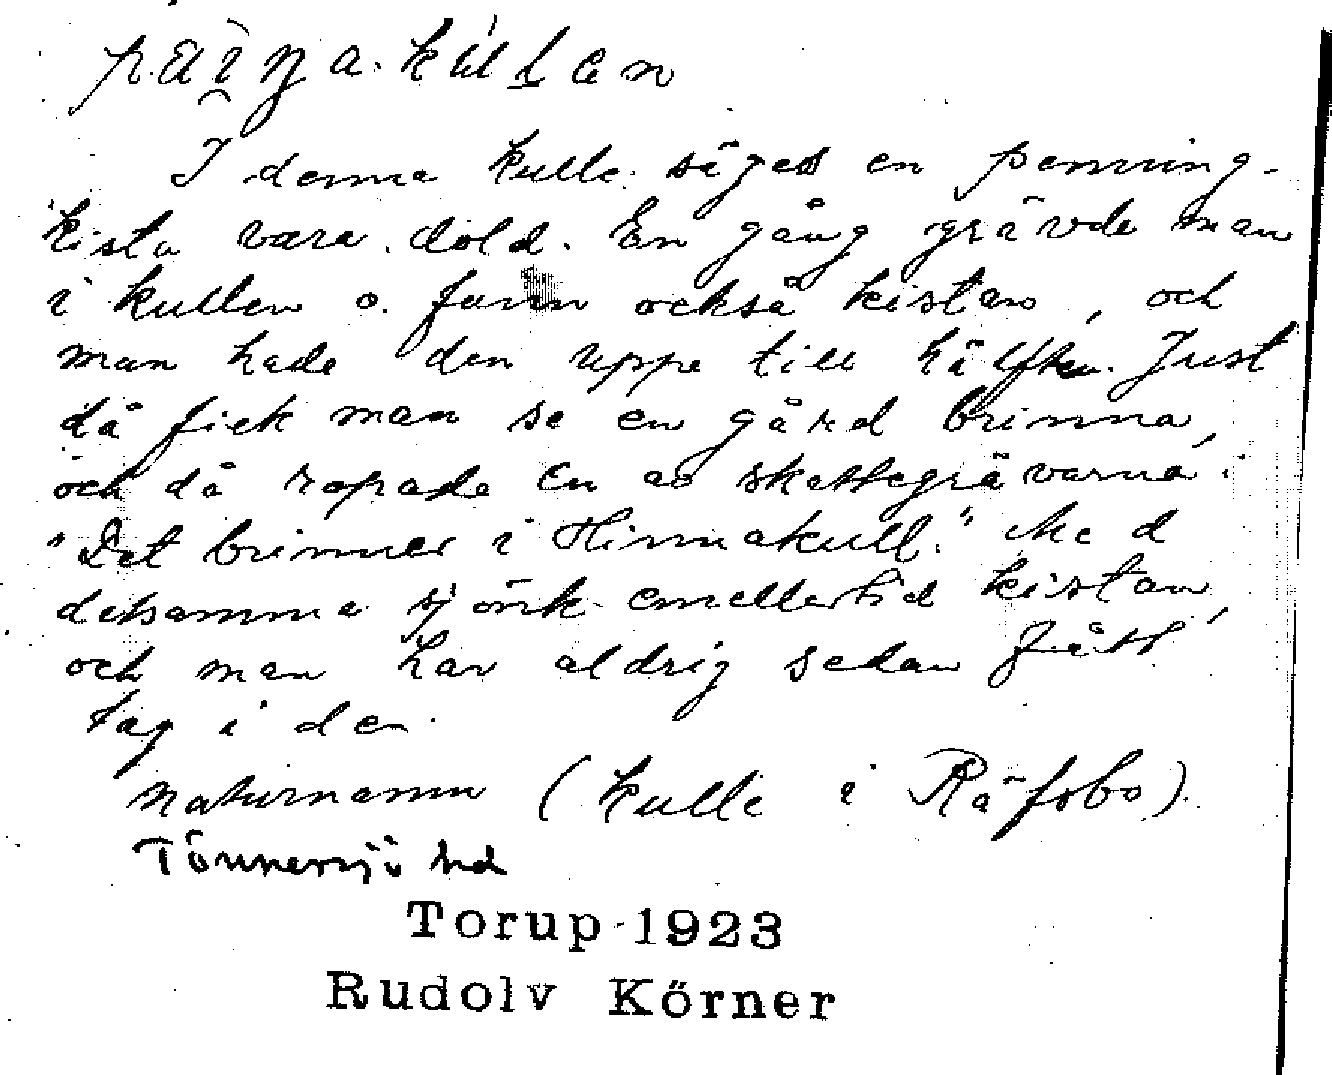 I denna kulle säges en penning-
kista vara dold. En gång grävde man
i kullen o. fann också kistan, och
man hade den uppe till hälften. Just
då fick man se en gård brinna,
och då ropade en av skattegrävarna:
"Det brinner i Hinnakull." Med
detsamma sjönk emellertid kistan,
och man har aldrig sedan fått
tag i den.
Naturnamn (kulle i Räfsbo).
Tönnersjö hd
Torup 1923
Rudolv Körner